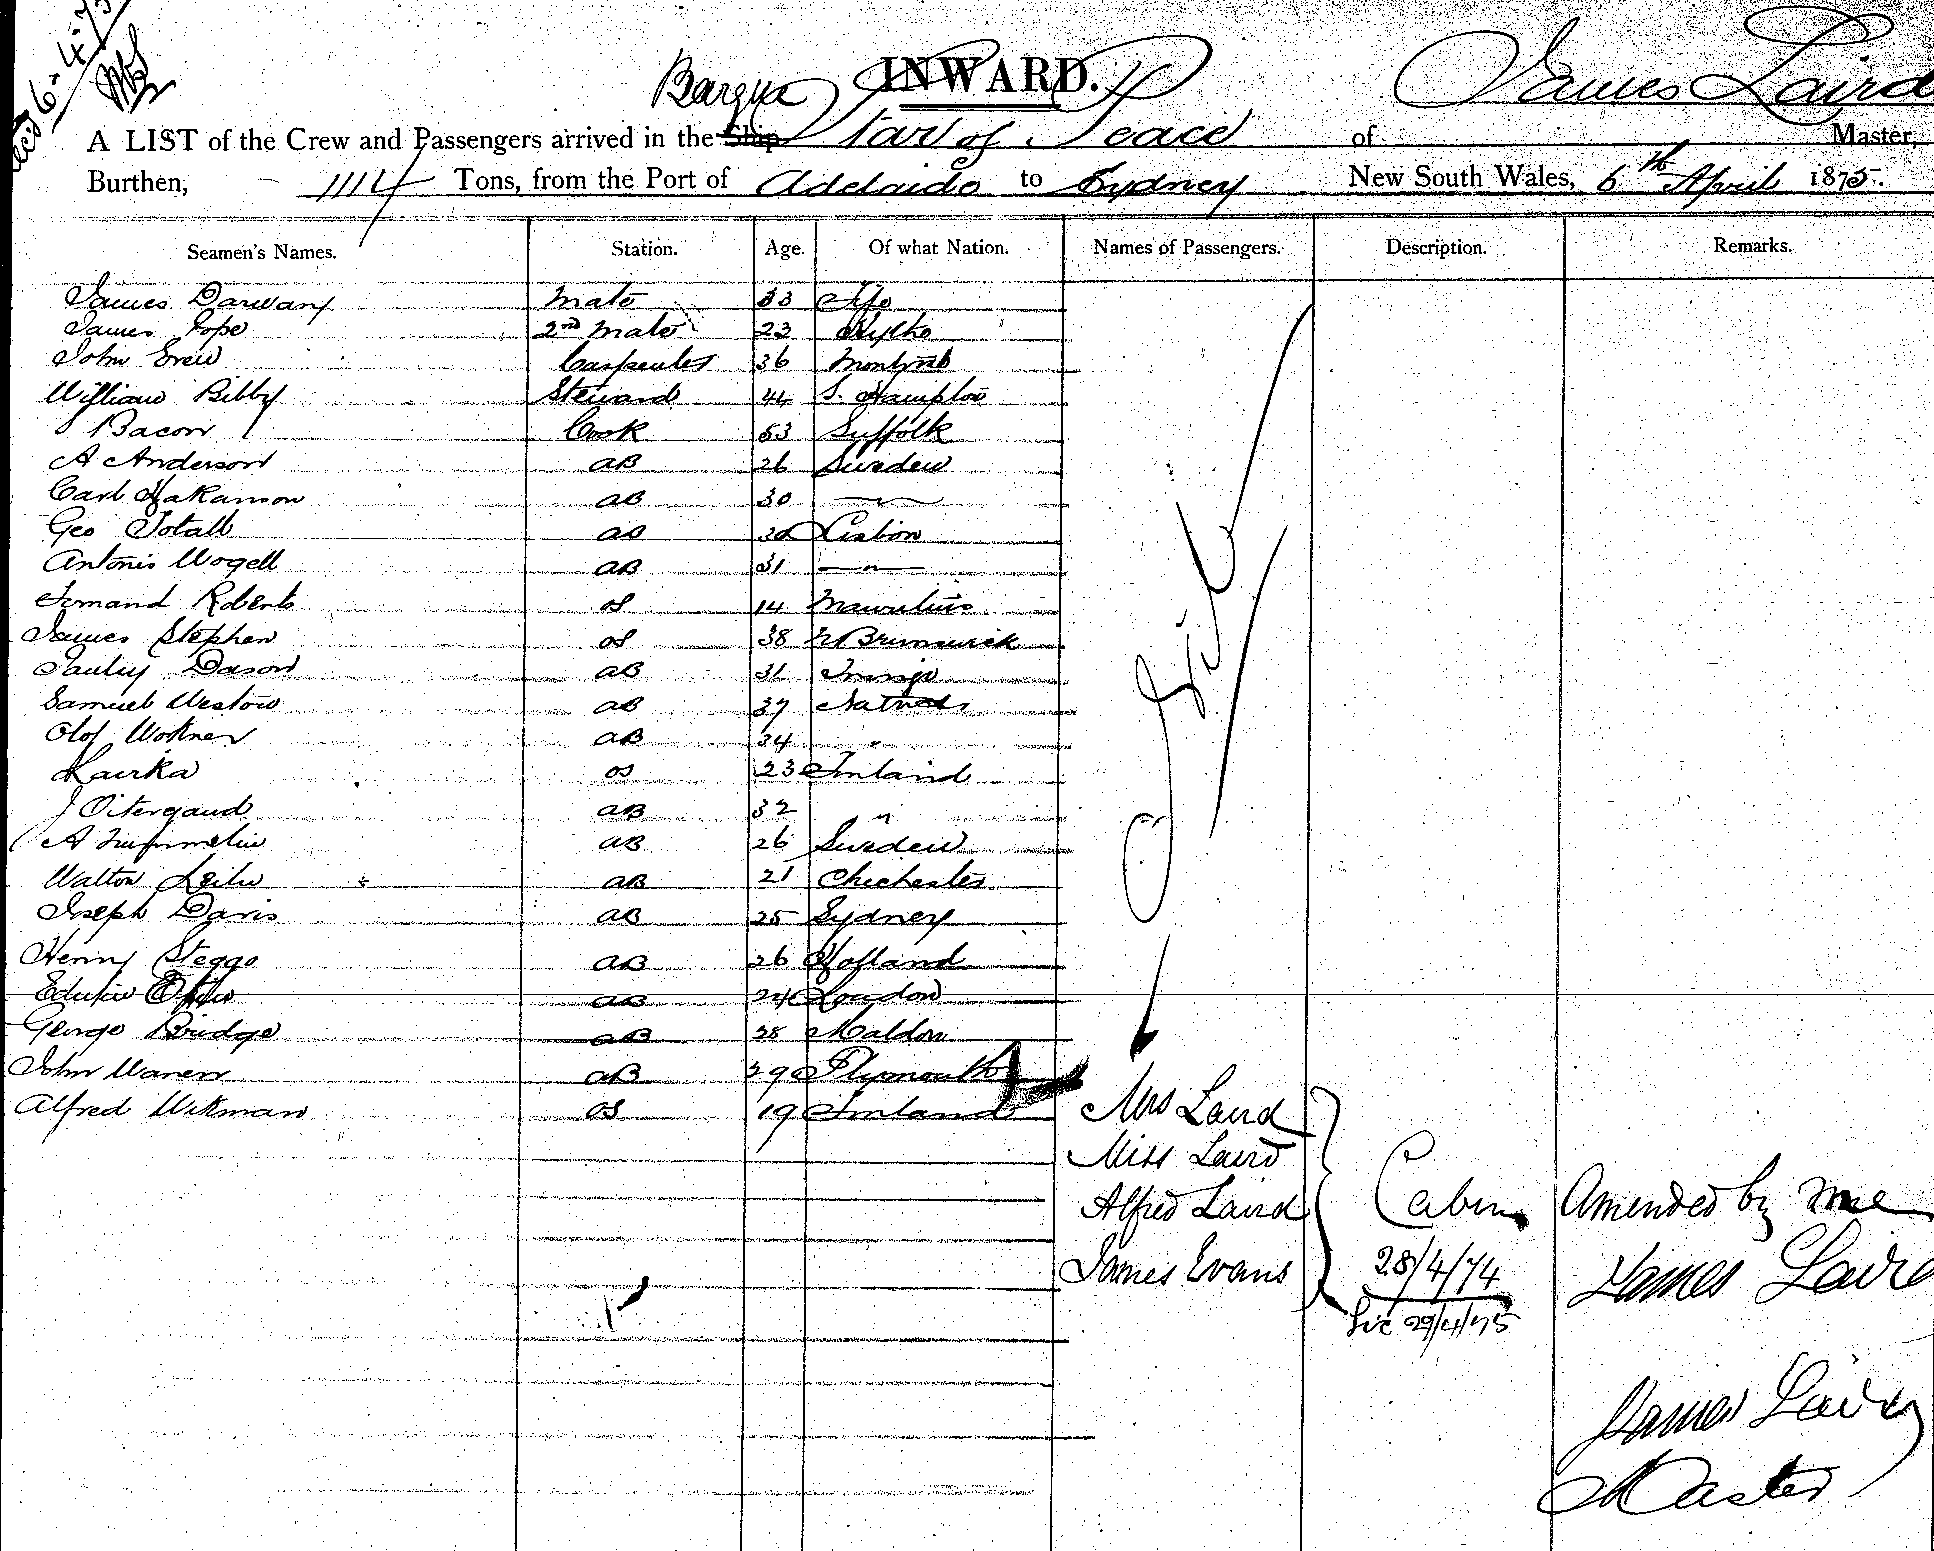 6.4.75
Barque
INWARD.
James Laird
A LIST of the Crew and Passengers arrived in the Ship Star of Peace of Master,
Burthen, 1114 Tons, from the Port of Adelaide to Sydney New South Wales, 6th April 1875.
Seamen's Names. Station. Age. Of what Nation. Names of Passengers. Description. Remarks.
James Mate 33 Fife
James Pope 2nd Mate 23 Blythe
John Carpenter 36 Montrose
William Bibby Steward 44 S. Hampton
Bacon Cook 53 Suffolk
A Anderson AB 26 Sweden
Carl Hakanson AB 30 — " —
Geo Totall AB 30 Lisbon
Antonio Wogell AB 31 — " —
Roberts OS 14 Mauritius
James Stephen OS 38 N Brunswick
Dason AB 31
Samuel Weston AB 37
Olof Wokner AB 34 "
Lairka OS 23 Finland
J AB 32 "
A AB 26 Sweden
Walton AB 21 Chichester
Joseph Davis AB 25 Sydney
Henry Steggo AB 26 Holland
AB 24 London
George Bridge AB 28 Maldon
John Waren AB 29 Plymouth
Alfred Wikman OS 19 Finland
Mrs Laird
Miss Laird
Alfred Laird Cabin Amended by me
James Evans 28/4/74 James Laird
29/4/75
James Laird
Master